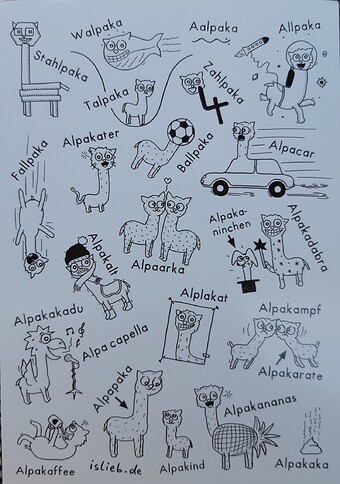 Walpaka
Aalpaka
Allpaka
Stahlpaka
Talpaka
Zahlpaka
4
Fallpaka
Alpakater
Ballpaka
Alpacar
Alpakalt
Alpaarka
Alpaka-
ninchen
Alpakadabra
Alpakakadu
Alpacapella
Alplakat
Alpakampf
Alpakarate
Alpapaka
Alpakananas
Alpakaffee
islieb.de
Alpakind
Alpakaka